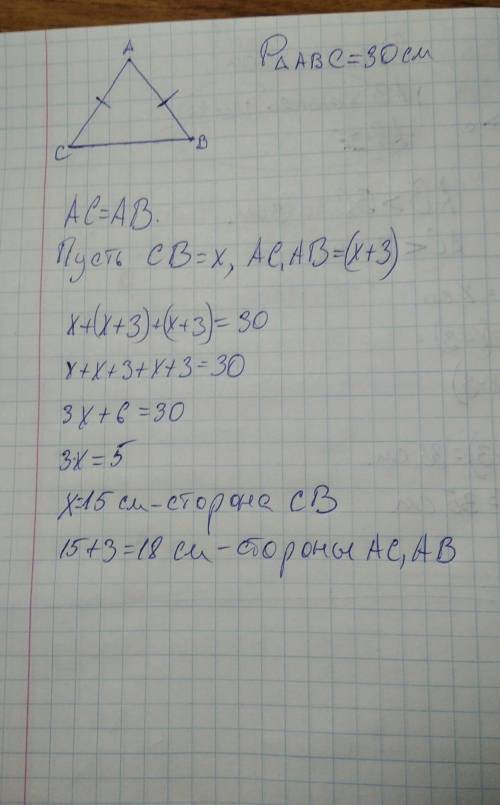 A
P△ABC=30см
C
B
AC=AB.
Пусть CB=x, AC,AB=(x+3)
x+(x+3)+(x+3)=30
x+x+3+x+3=30
3x+6=30
3x=5
x=15 см-сторона CB
15+3=18 см-стороны AC, AB